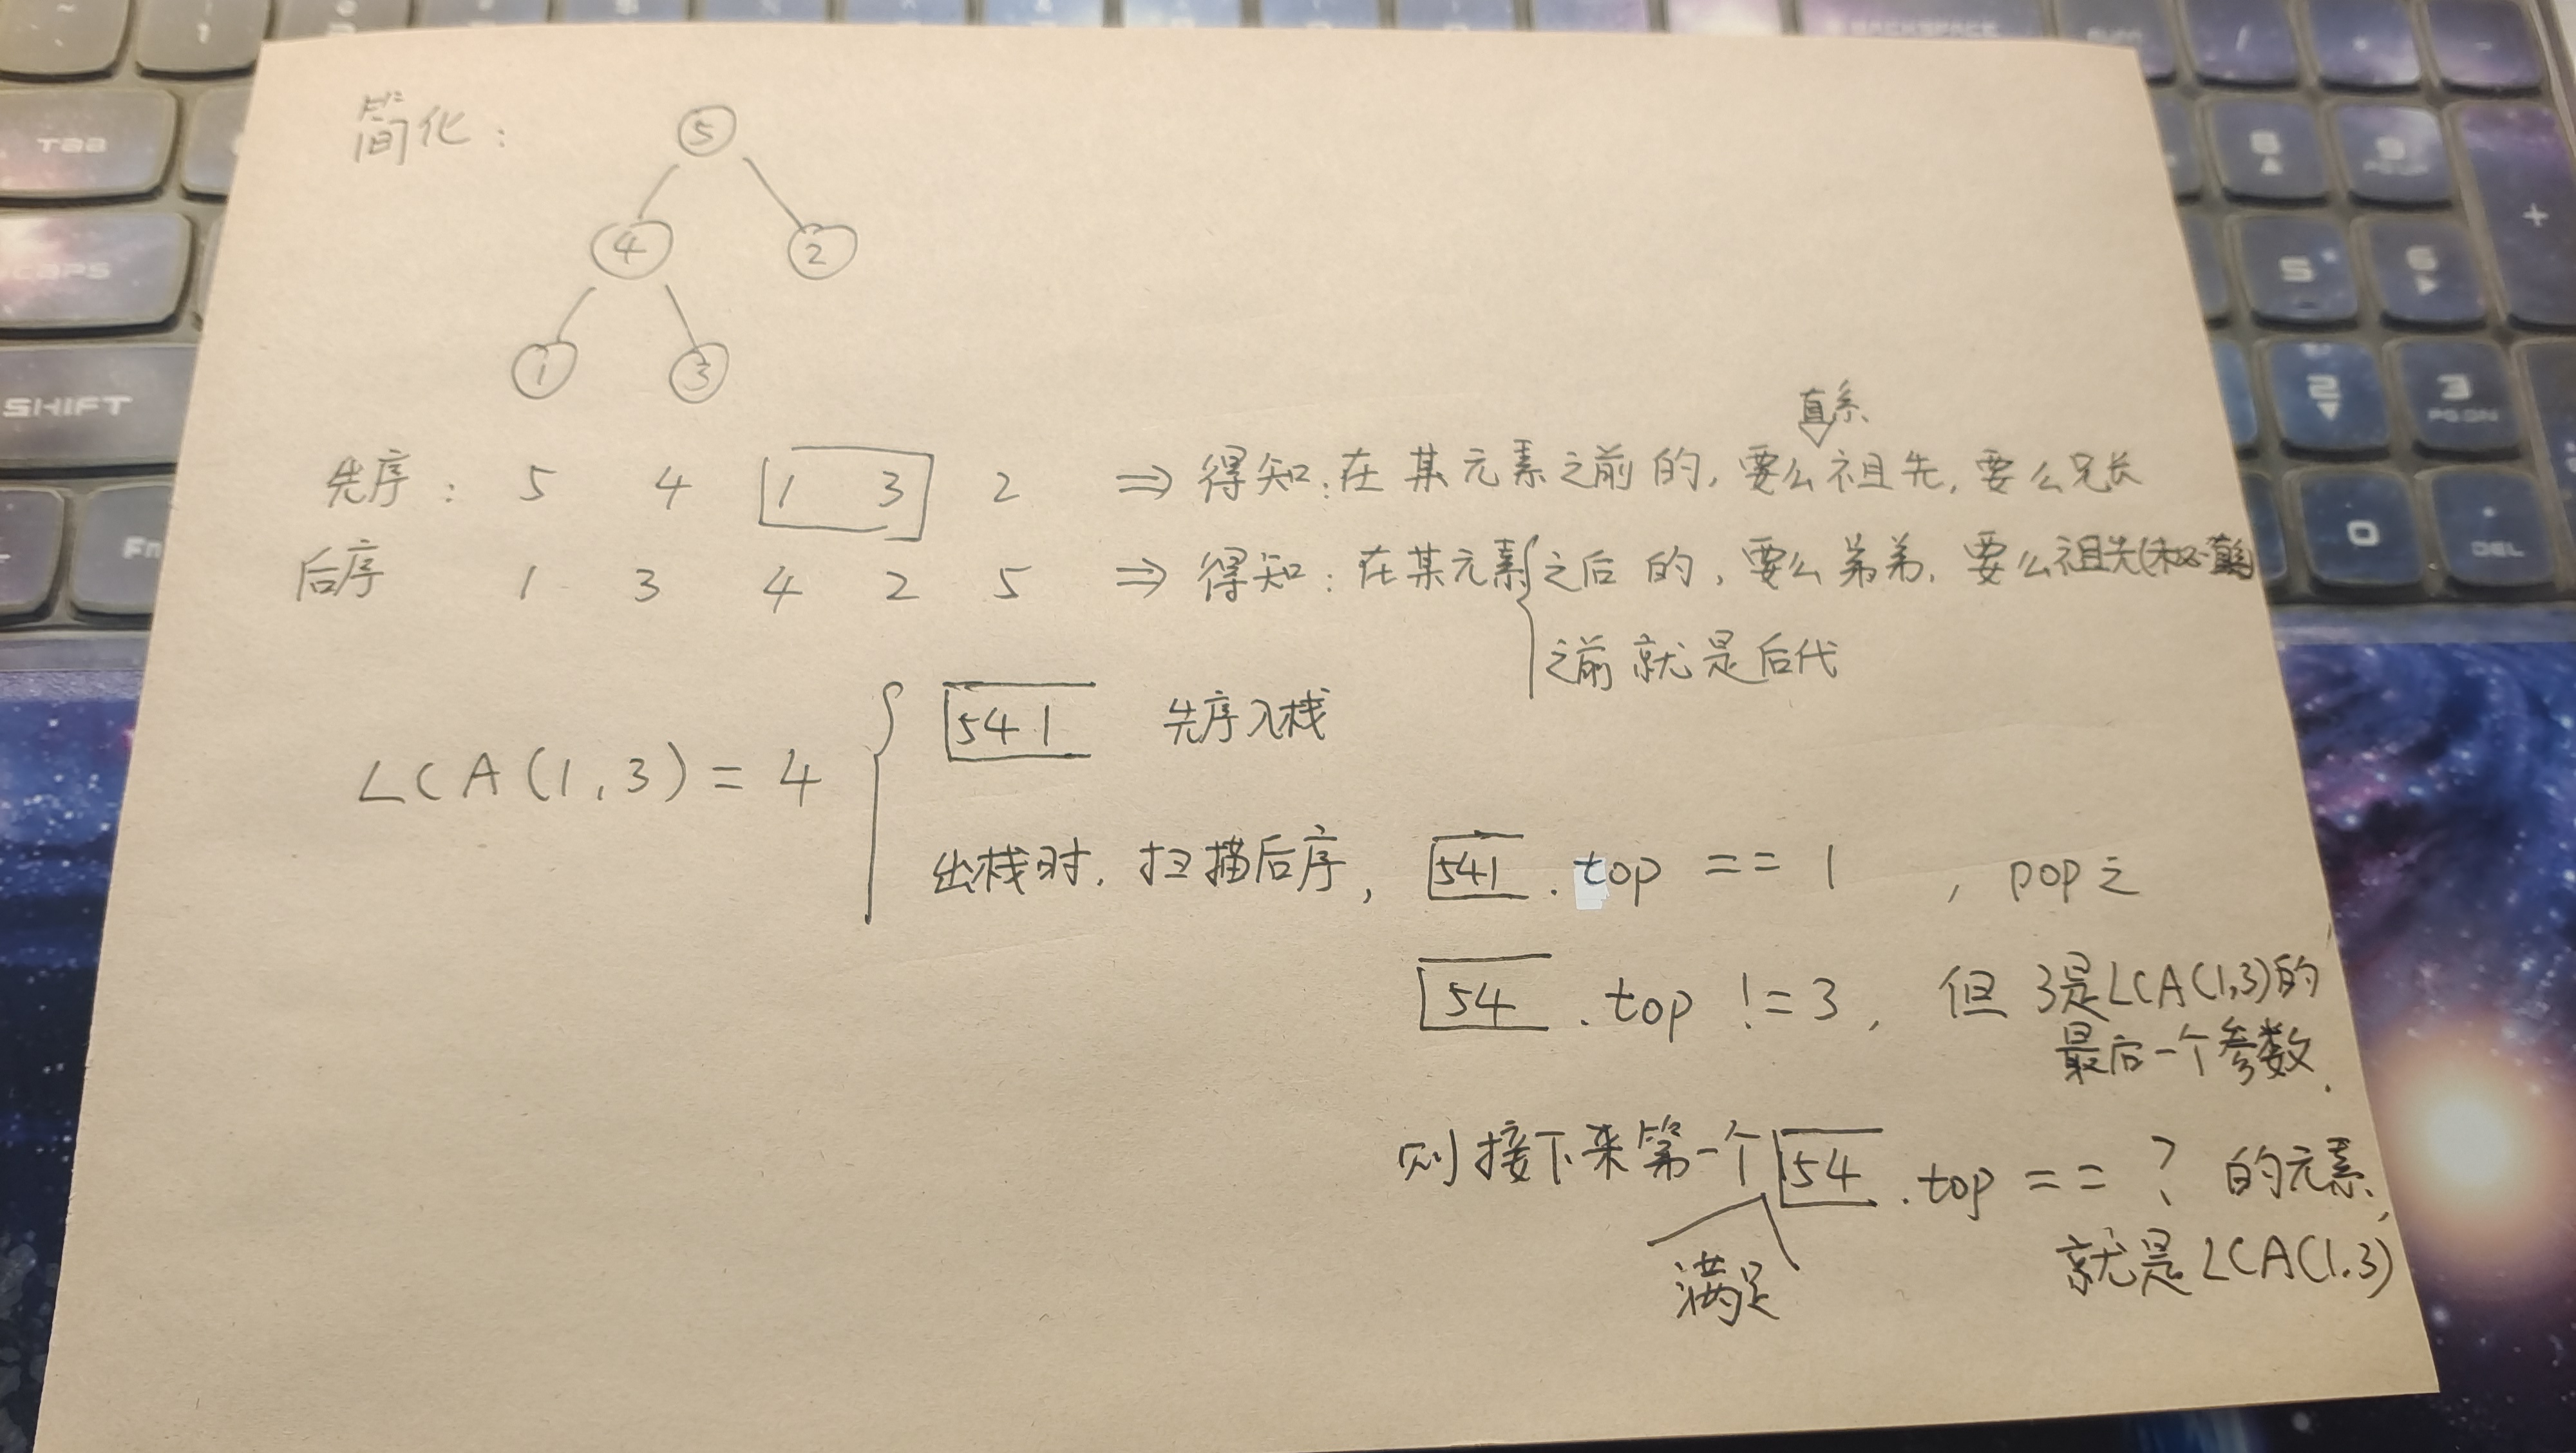 简化：
5
4 2
1 3
直系
先序： 5 4 1 3 2 ⇒ 得知：在某元素之前的，要么祖先，要么兄长
后序 1 3 4 2 5 ⇒ 得知：在某元素之后的，要么弟弟，要么祖先(
之前就是后代
541 先序入栈
LCA(1,3) = 4
出栈时，扫描后序，541.top == 1，pop之
54.top != 3，但3是LCA(1,3)的
最后一个参数.
则接下来第一个54.top == ? 的元素，
满足
就是LCA(1,3)
Taa
CAPS
SHIFT
Fn
BACKSPACE
8
9
+
5
6
2
3
PG DN
0
.
DEL